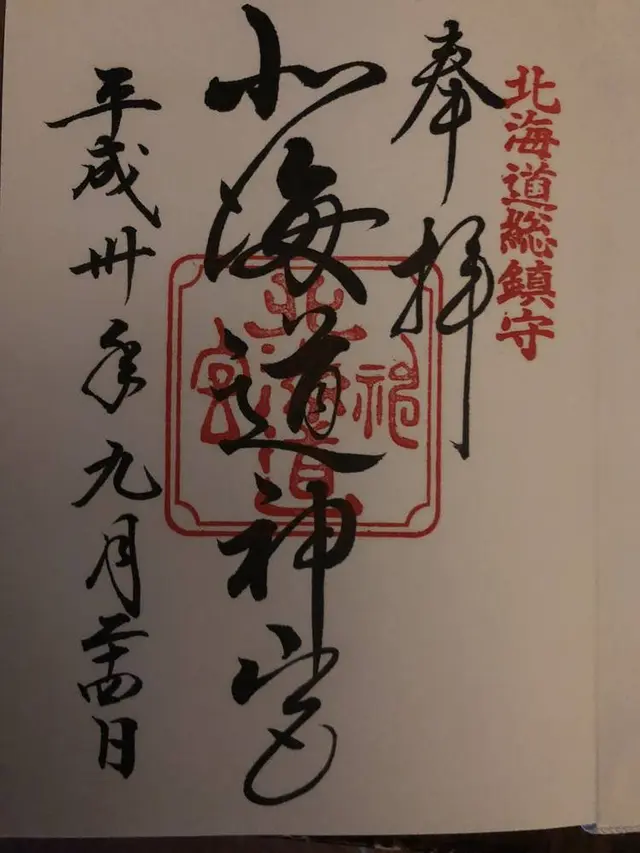 北海道総鎮守
奉拝
北海道神宮
北海道神宮
平成卅年九月二十四日